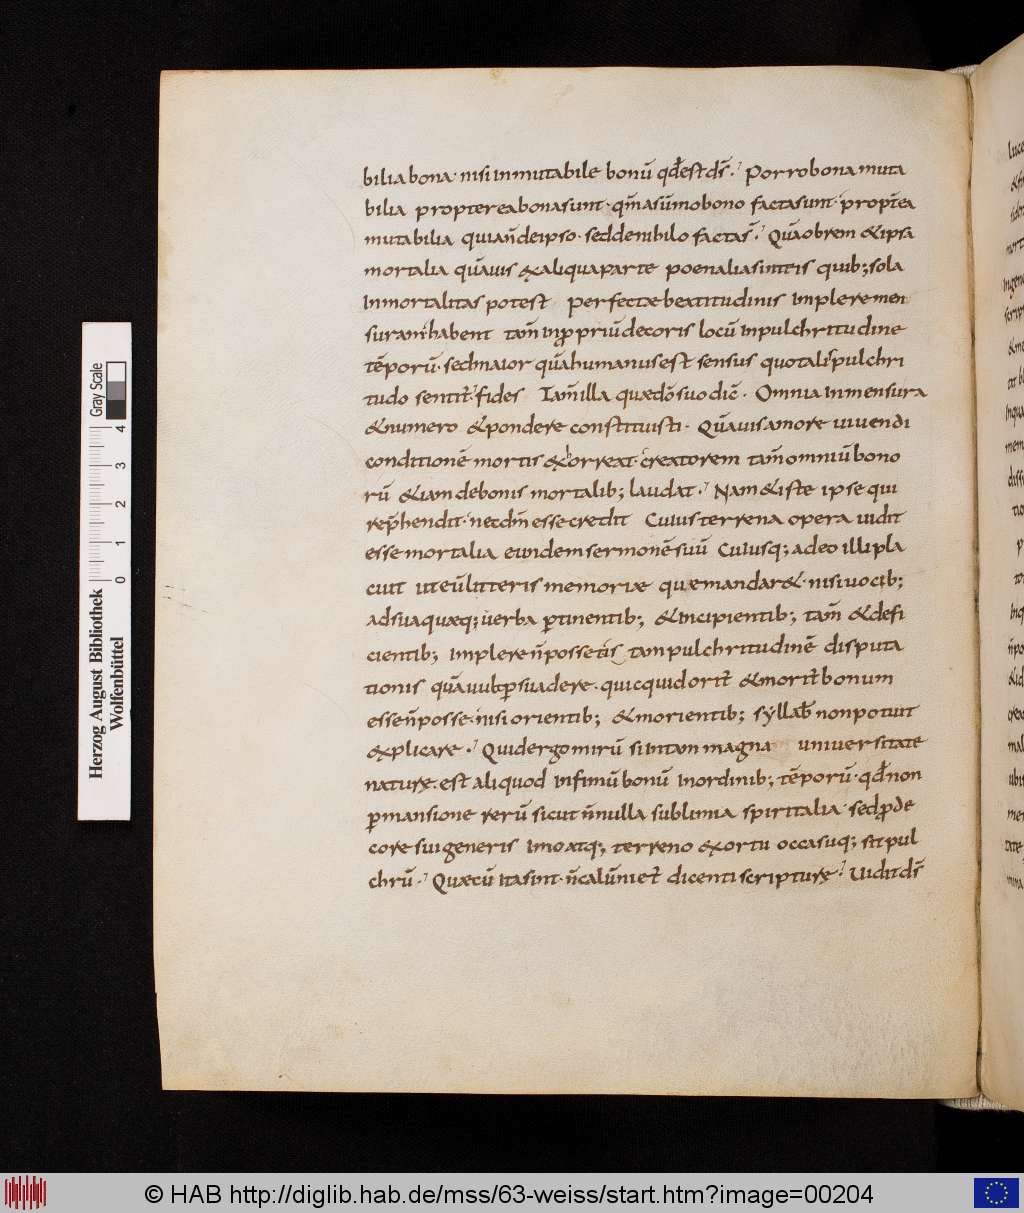 bilia bona· nisi inmutabile bonū qđ est ds̄. Porro bona muta
bilia propterea bona sunt· qm̄ a sūmo bono facta sunt· propt̄ea
mutabilia quia n̄ de ipso· sed de nihilo facta s̄. Quā obrem & ipsa
mortalia quāuis ex aliqua parte poenalia sint eis quib; sola
inmortalitas potest perfectae beatitudinis implere men
suram habent tam̄ in ꝓpriū decoris locū in pulchritudine
tēporū· sed maior quā humanus est sensus quo talis pulchri
tudo sentit̄· fides Iam̄ illa quae dō suo dic̄· Omnia in mensura
& numero & pondere constituisti· Quāuis amore uiuendi
conditionē mortis exhorreat· creatorem tam̄ omniū bono
rū &iam de bonis mortalib; laudat. Nam & iste ipse qui
rep̄hendit· nec dm̄ esse credit Cuius terrena opera uidit
esse mortalia eundem sermonē suū Cuiusq; adeo illi pla
cuit ut eū litteris memoriae quae mandar&· nisi uocib;
ad sua quaeq; uerba ꝑtinentib; & incipientib; tam̄ & defi
cientib; implere n̄ posset is tam pulchritudinē disputa
tionis quā uult ꝑsuadere· quicquid orit̄ & morit̄ bonum
esse n̄ posse· nisi orientib; & morientib; syllab̄ non potuit
explicare. Quid ergo mirū si in tam magna uniuersitate
naturae· est aliquod infimū bonū in ordinib; tēporū· qđ non
ꝑmansione rerū sicut n̄nulla sublimia spiritalia sed ꝓ de
core sui generis imo atq; terreno exortu occasuq; sit pul
chrū. Quae cū ita sint· n̄ calūniet̄ dicenti scripturae. Uidit ds̄
Herzog August Bibliothek
Wolfenbüttel
Gray Scale
0 1 2 3 4
© HAB http://diglib.hab.de/mss/63-weiss/start.htm?image=00204